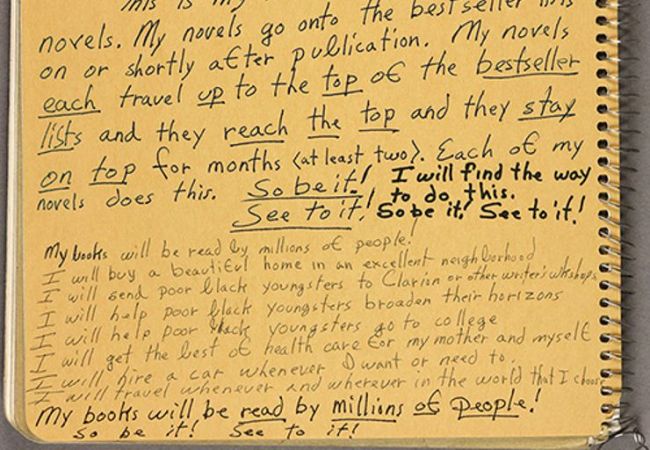 This is my
novels. My novels go onto the bestseller lists
on or shortly after publication. My novels
each travel up to the top of the bestseller
lists and they reach the top and they stay
on top for months (at least two). Each of my
novels does this. So be it! I will find the way
See to it! to do this.
So be it! See to it!
My books will be read by millions of people!
I will buy a beautiful home in an excellent neighborhood
I will send poor black youngsters to Clarion or other writer's wkshops
I will help poor black youngsters broaden their horizons
I will help poor black youngsters go to college
I will get the best of health care for my mother and myself
I will hire a car whenever I want or need to.
I will travel whenever and wherever in the world that I choose
My books will be read by millions of people!
So be it! See to it!